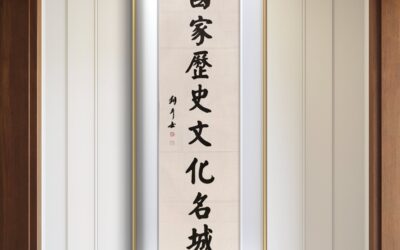 國家歷史文化名城